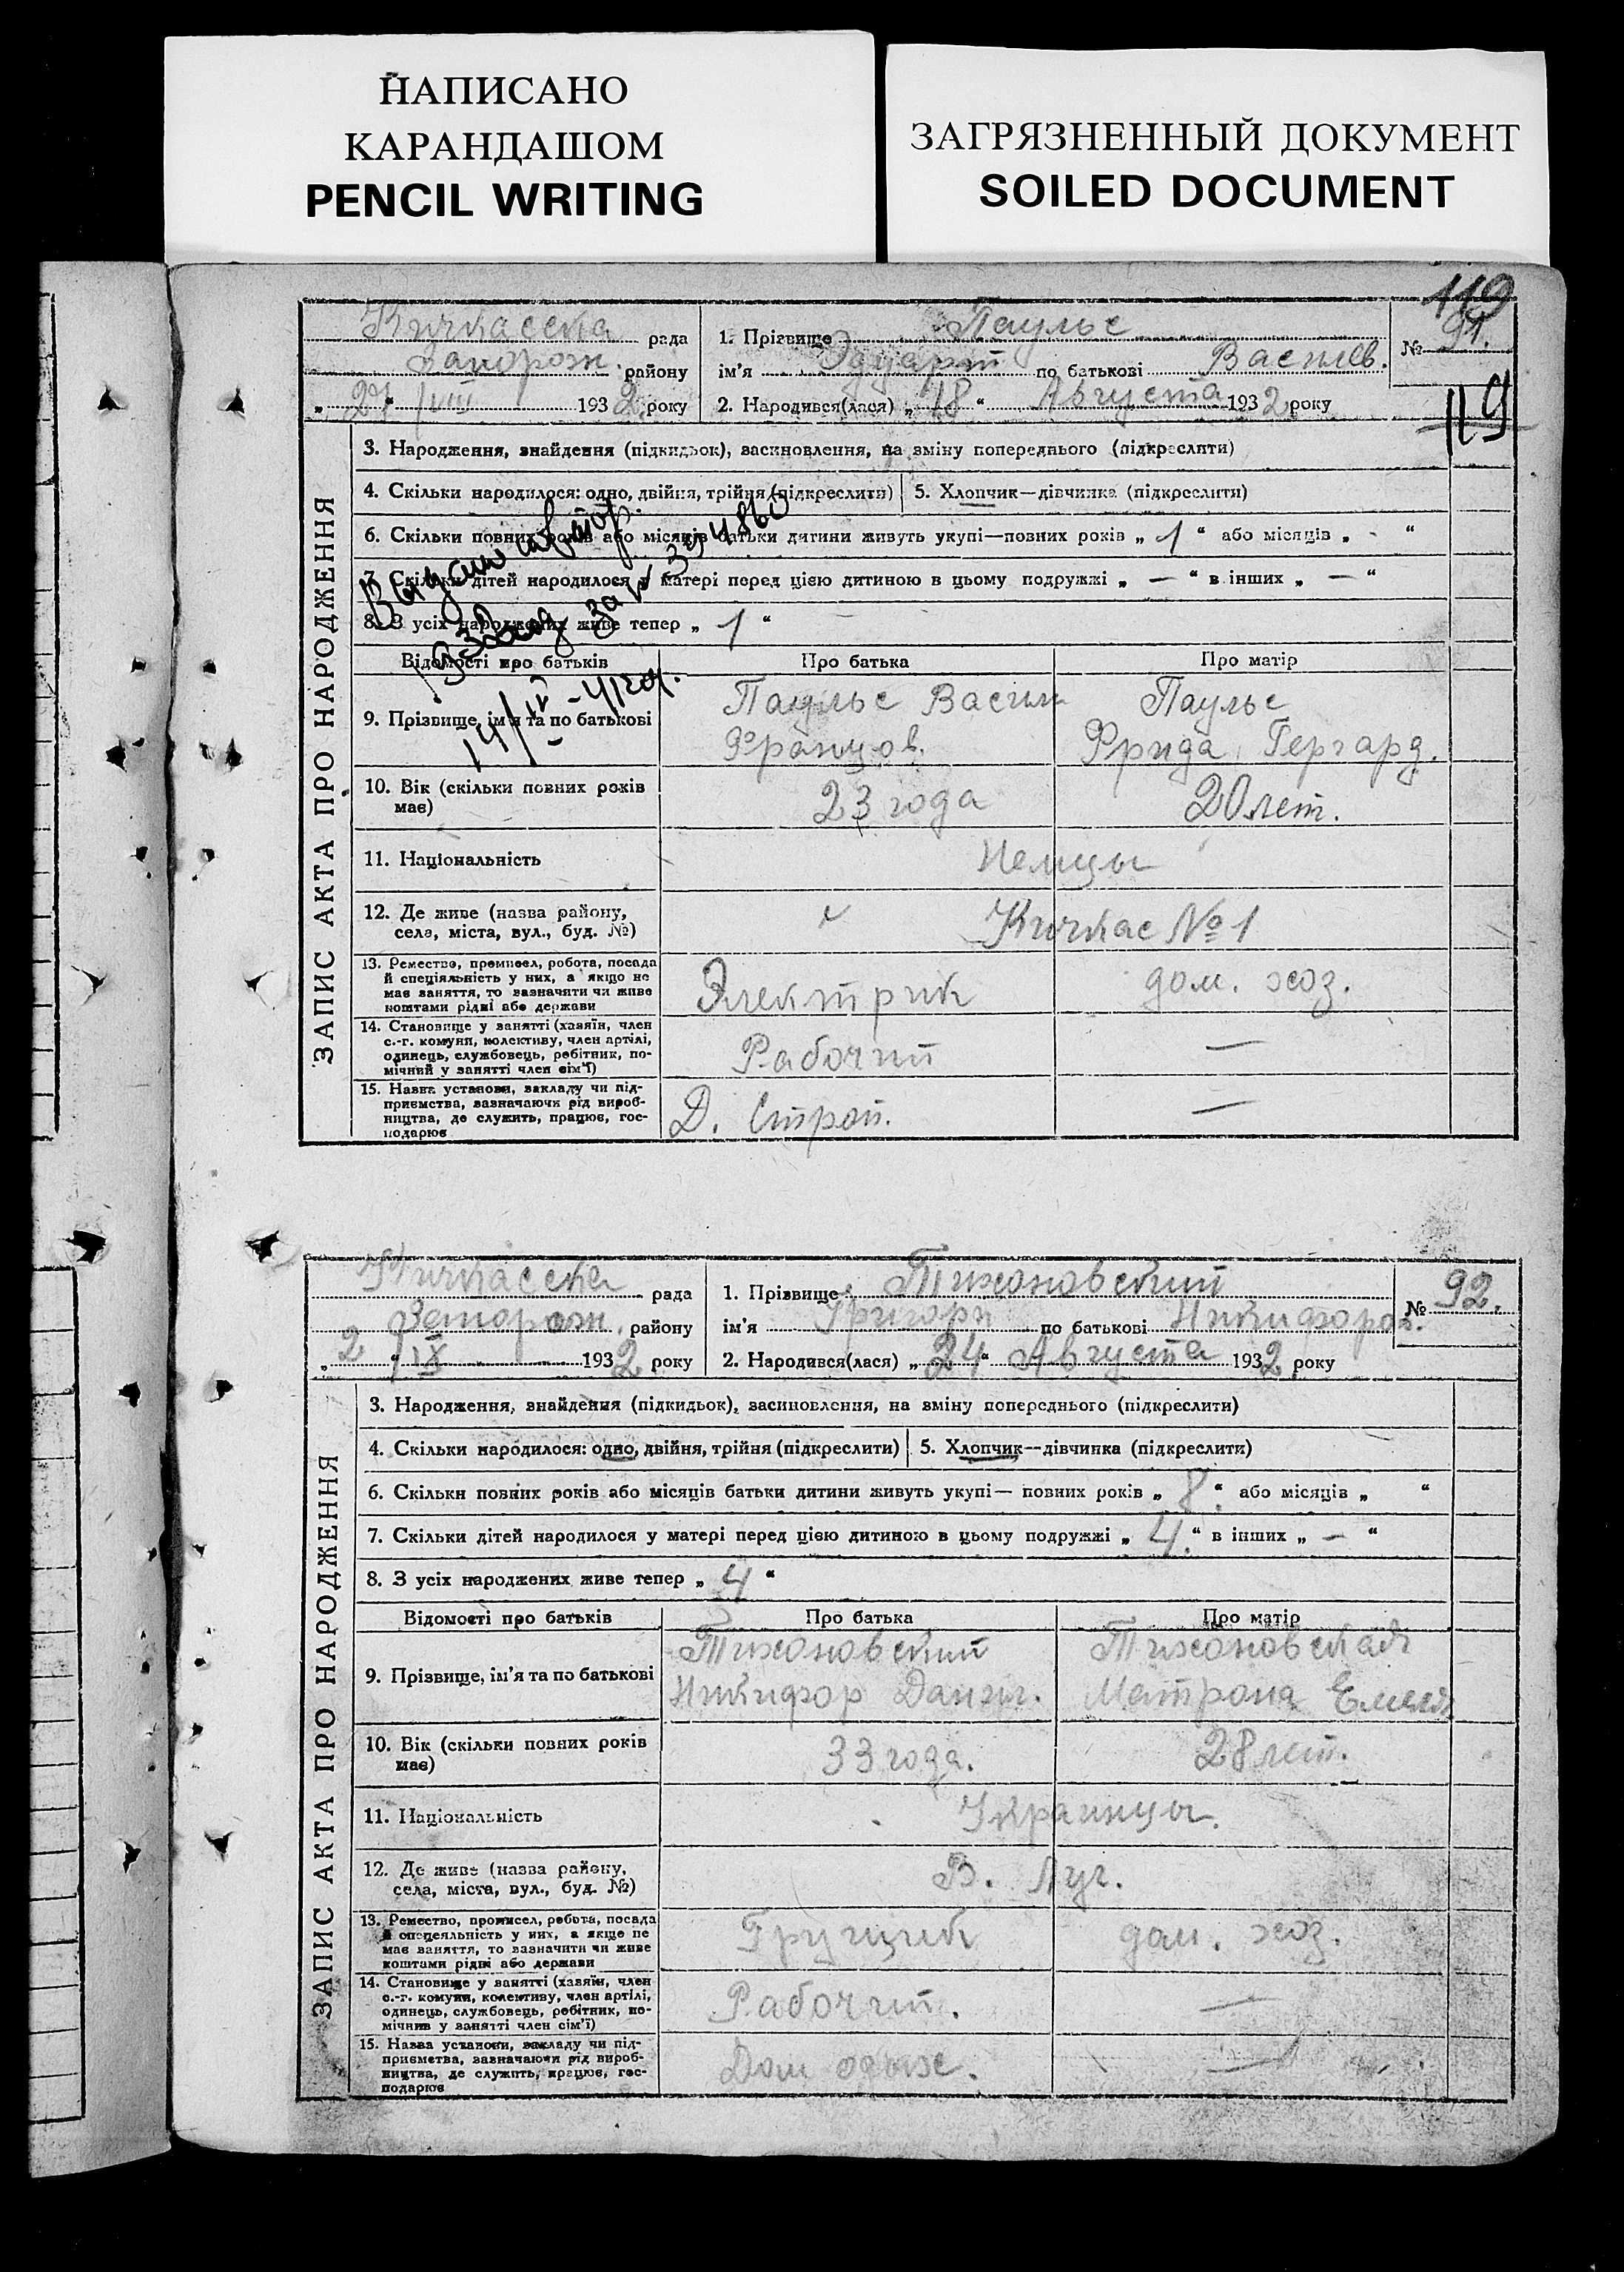 НАПИСАНО
КАРАНДАШОМ
PENCIL WRITING
ЗАГРЯЗНЕННЫЙ ДОКУМЕНТ
SOILED DOCUMENT
119
Кичкасска рада
Запорож. району
„27“ VIII 1932 року
1. Прізвище Паульс
ім'я Эдуард по батькові Васильев.
2. Народився(лася) „18“ Августа 1932 року
№ 91.
119
ЗАПИС АКТА ПРО НАРОДЖЕННЯ
3. Народження, знайдення (підкидьок), васиновлення, на зміну попереднього (підкреслити)
4. Скільки народилося: одно, двійня, трійня (підкреслити) 5. Хлопчик—дівчинка (підкреслити)
6. Скільки повних років або місяців батьки дитини живуть укупі—повних років „1“ або місяців „-“
7. Скільки дітей народилося у матері перед цією дитиною в цьому подружжі „—“ в інших „—“
8. З усіх народжених живе тепер „1“
Выдано повтор.
14/IV-41 год.
Відомості про батьків Про батька Про матір
9. Прізвище, ім'я та по батькові
Паульс Васил
Францов.
Паульс
Фрида Гергард.
10. Вік (скільки повних років має)
23 года
20 лет.
11. Національність
Немцы
12. Де живе (назва району, села, міста, вул., буд. №)
Кичкас №1
13. Ремество, промисел, робота, посада
й спеціяльність у них, а якщо не
має заняття, то зазначити чи живе
коштами рідні або держави
Электрик
дом. хоз.
14. Становище у занятті (хазяїн, член
с.-г. комуни, колективу, член артілі,
одинець, службовець, робітник, по-
мічний у занятті член сім'ї)
Рабочий
—
15. Назва установи, закладу чи під-
приємства, зазначаючи рід вироб-
ництва, де служить, працює, гос-
подарює
Д. Строй.
—
Кичкасска рада
Запорож. району
„2“ IX 1932 року
1. Прізвище Тихоновский
ім'я Григорий по батькові Никифоров.
2. Народився(лася) „24“ Августа 1932 року
№ 92.
ЗАПИС АКТА ПРО НАРОДЖЕННЯ
3. Народження, знайдення (підкидьок), васиновлення, на зміну попереднього (підкреслити)
4. Скільки народилося: одно, двійня, трійня (підкреслити) 5. Хлопчик—дівчинка (підкреслити)
6. Скільки повних років або місяців батьки дитини живуть укупі— повних років „8“ або місяців „ “
7. Скільки дітей народилося у матері перед цією дитиною в цьому подружжі „4.“ в інших „—“
8. З усіх народжених живе тепер „4“
Відомості про батьків Про батька Про матір
9. Прізвище, ім'я та по батькові
Тихоновский
Никифор Данил.
Тихоновская
Матрона Емель
10. Вік (скільки повних років має)
33 года.
28 лет.
11. Національність
Украинцы.
12. Де живе (назва району, села, міста, вул., буд. №)
В. Луг.
13. Ремество, промисел, робота, посада
й спецеяльність у них, а якщо не
має заняття, то зазначити чи живе
коштами рідні або держави
Грузчик
дом. хоз.
14. Становище у занятті (хазяїн, член
с.-г. комуни, колективу, член артілі,
одинець, службовець, робітник, по-
мічний у занятті член сім'ї)
Рабочий.
—
15. Назва установи, закладу чи під-
приємства, зазначаючи рід вироб-
ництва, де служить, працює, гос-
подарює
Дом отдых.
—